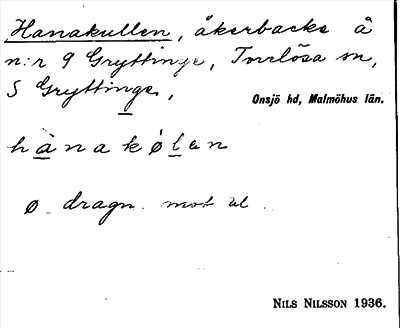 Hanakullen, åkerbacke å
n:r 9 Gryttinge, Torrlösa sn,
S Gryttinge,
Onsjö hd, Malmöhus län.
hanakølen
ø dragn. mot
NILS NILSSON 1936.